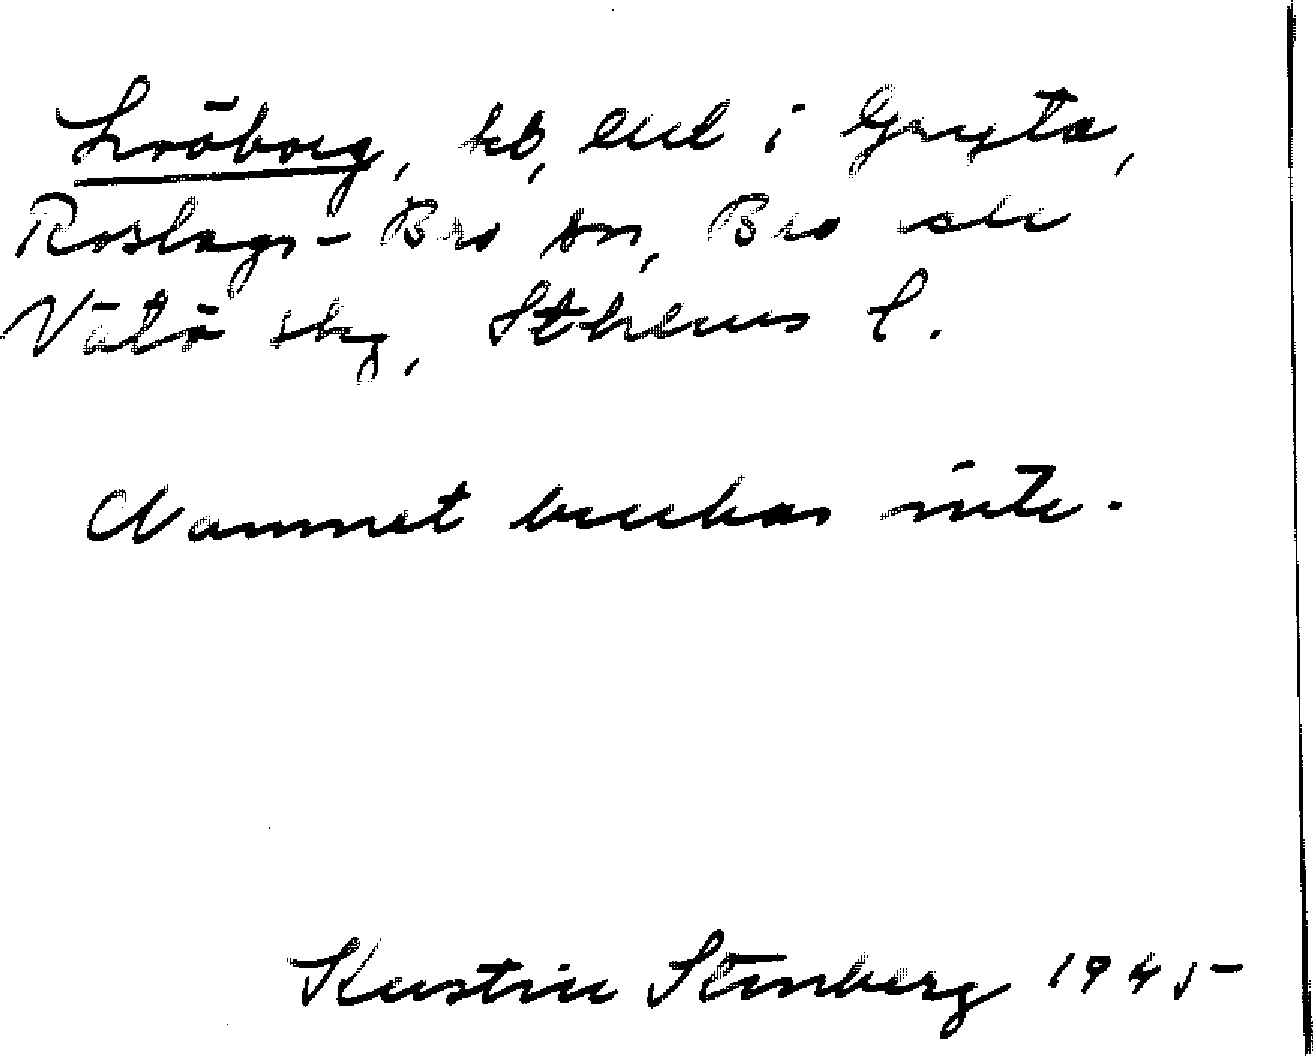 Lvöborg, kb, del i Gryta,
Roslags-Bro sn, Bro och
Vätö skg, Sthlms l.
Namnet brukas inte.
Kerstin Stenberg 1945